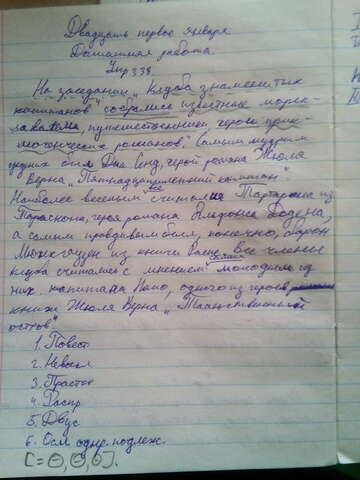 Двадцать первое января
Домашняя работа.
Упр 338.
На заседании „Клуба знаменитых
капитанов" собрались известные море-
плаватели, путешественники, герои прик-
люченческих романов. Самым мудрым
среди них был Дик Сенд, герой романа Жюля
Верна „Пятнадцатилетний капитан".
Наиболее весёлым все считали Тартарена из
Тараскона, героя романа Альфонса Додена,
а самым правдивым был, конечно, барон
Мюнхгаузен из книги Распе. Все члены
клуба считались с мнением
них капитана Немо, одного из героев
книги Жюля Верна „Таинственный
остров".
1. Повест
2. Невоскл
3. Простое
4. Распр
5. Двус
6. Осл однр. подлеж.
[О=О,О,О].